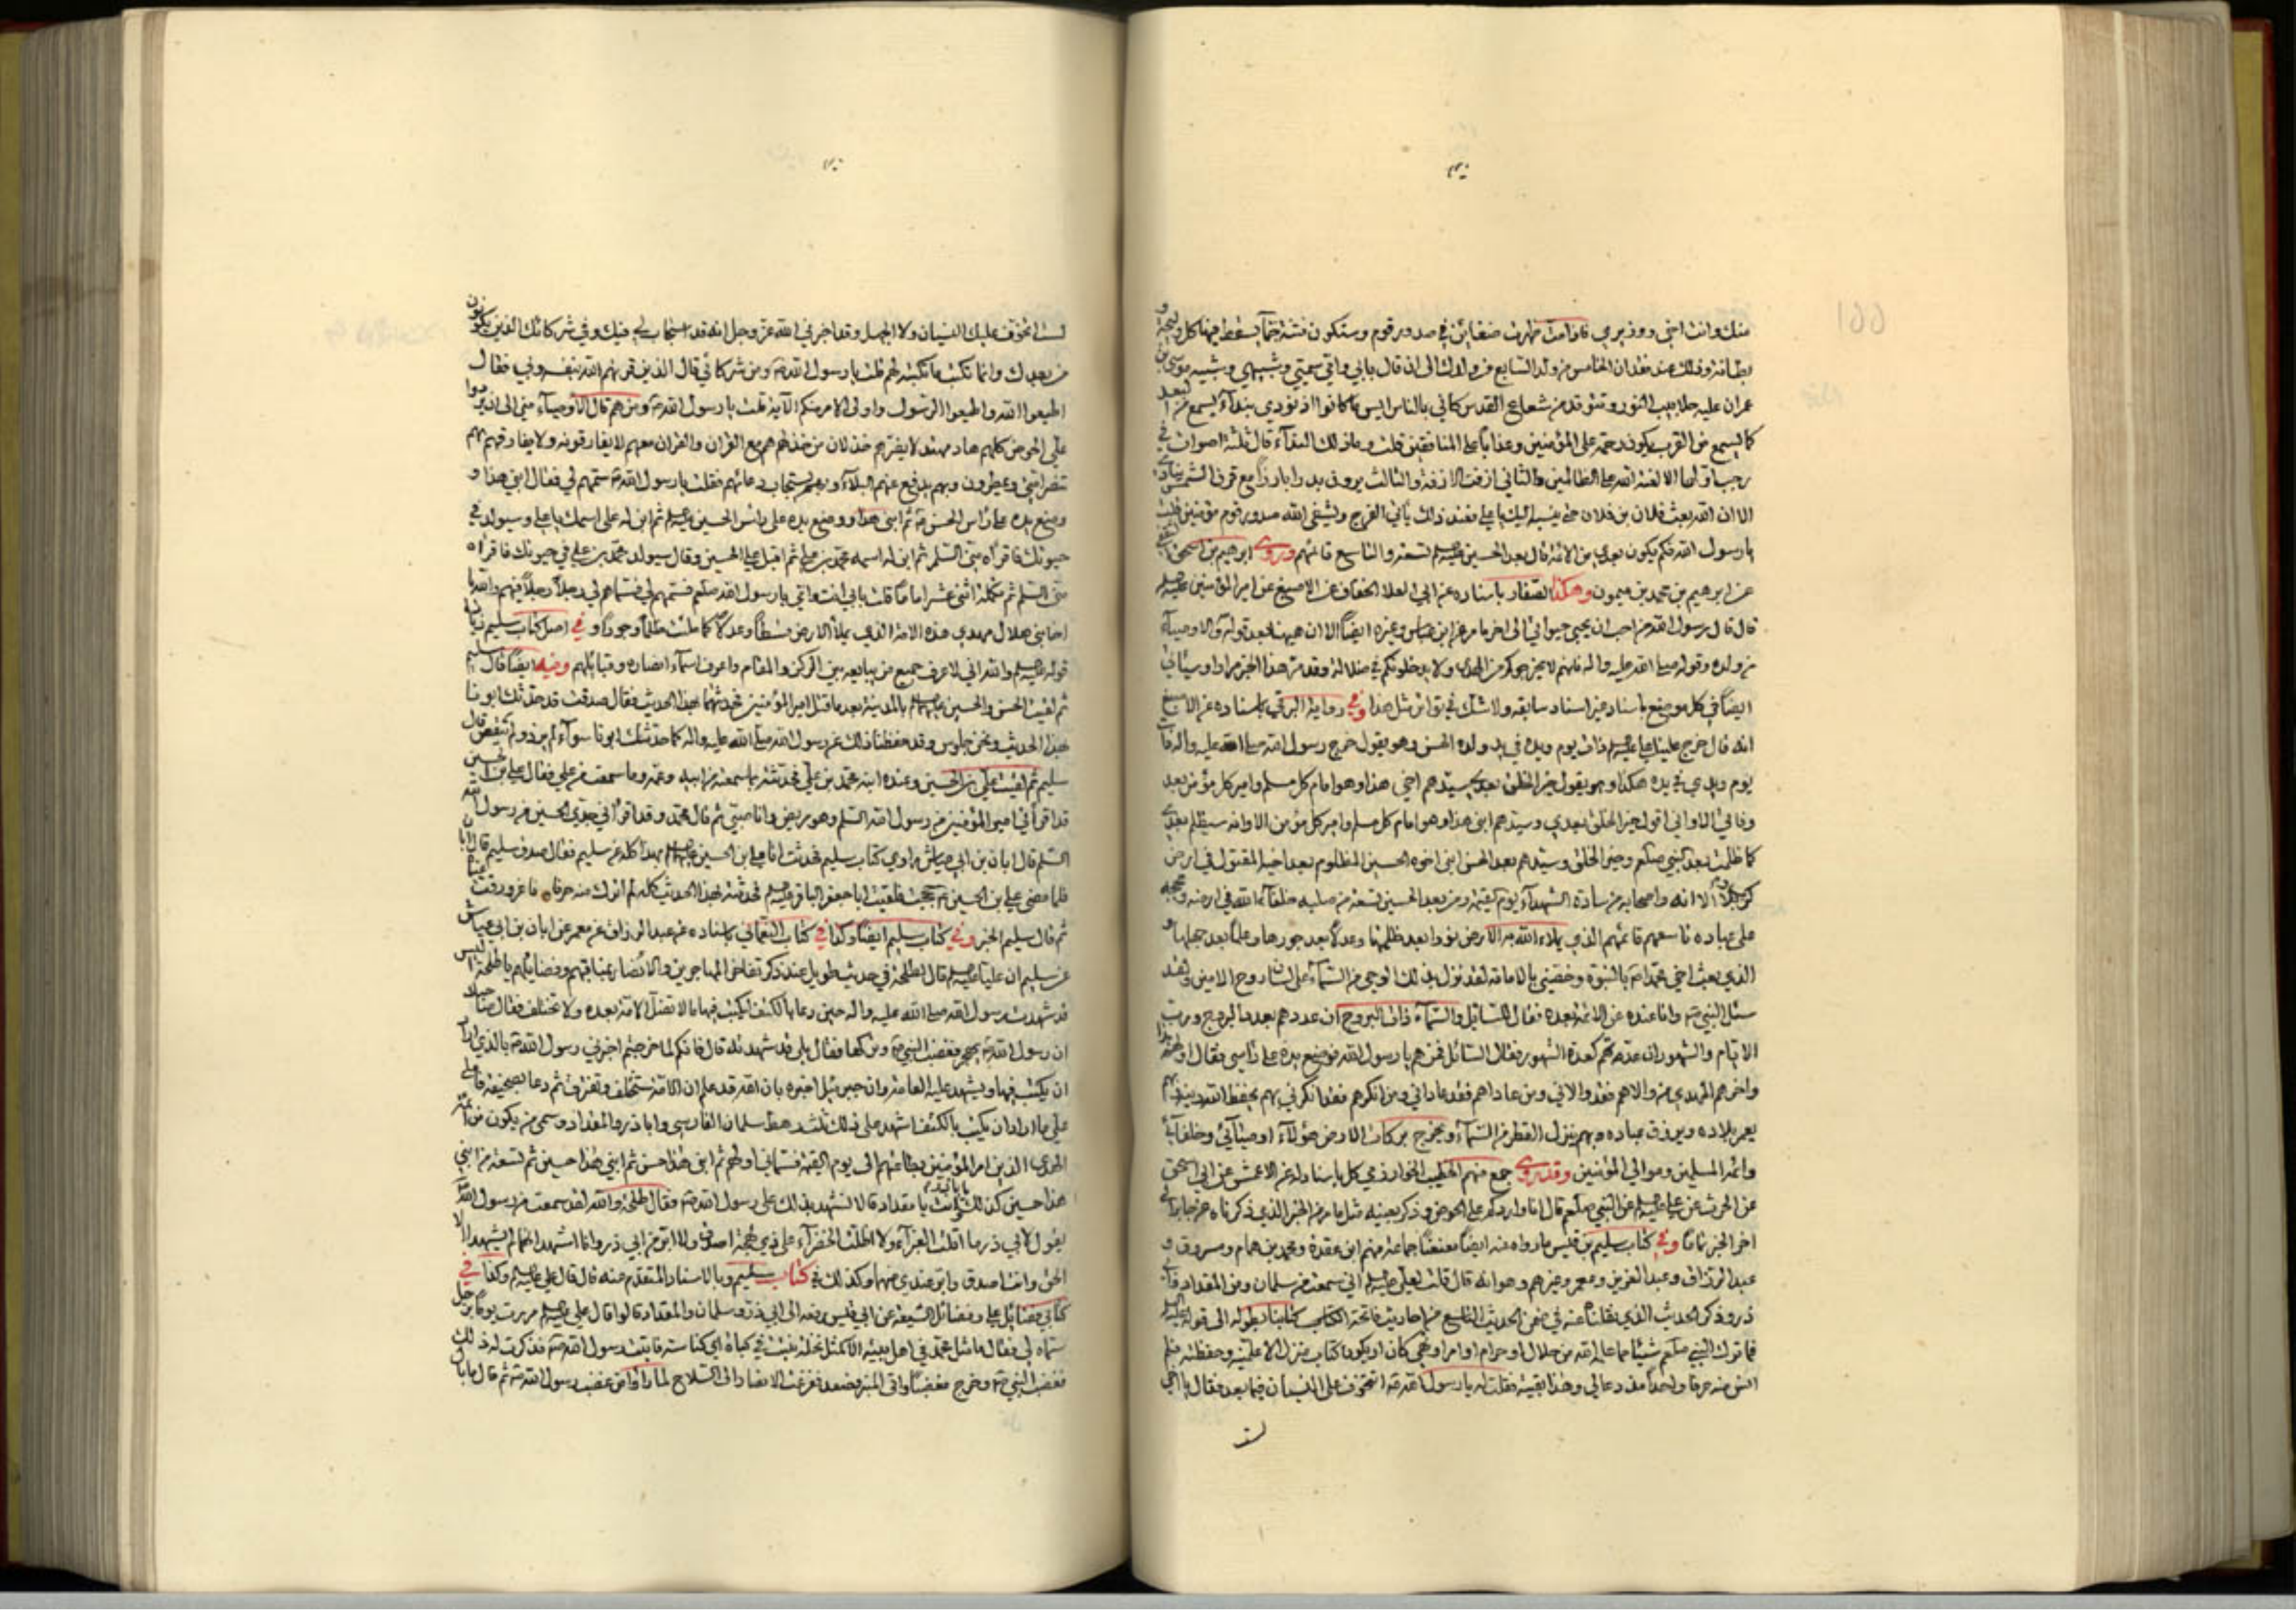 منك وانت اخي ووزيري فاذا مت ظهرت ضغائن في صدور قوم وستكون فتنة صماء يسقط فيها كل وليجة و
بطانة وذلك عند فقدان الخامس من ولد السابع من ولدك الى ان قال بابي وامي سميي وشبيهي وشبيه موسى بن
عمران عليه جلابيب النور يتوقد من شعاع القدس كاني بالناس ايس ما كانوا اذ نودي بنداء يسمع من البعد
كما يسمع من القرب يكون رحمة على المؤمنين وعذابا على المنافقين قلت وما ذلك النداء قال ثلثة اصوات في
رجب اولها الا لعنة الله على الظالمين والثاني ازفت الازفة والثالث يرون بدرا بارزا مع قرن الشمس ينادي
الا ان الله بعث فلان بن فلان حتى ينسبه اليك يا علي فعند ذلك ياتي الفرج ويشفى الله صدور قوم مؤمنين قلت
يا رسول الله فكم يكون بعدي من الائمة قال بعد الحسين تسعة والتاسع قائمهم وروى ابرهيم بن اسحق
عن ابرهيم بن محمد بن ميمون وهكذا الصفار باسناده عن ابي العلا الخفاف عن الاصبغ عن امير المؤمنين
قال قال رسول الله من احب ان يحيى حيوتي الى اخر ما مر عن ابن عباس وغيره ايضا الا ان ههنا بعد قوله والاوصياء
من ولده وقوله صلى الله عليه واله فانهم لا يخرجوكم من الهدى ولا يدخلونكم في ضلالة وقد مر هذا الخبر مرارا وسيأتي
ايضا في كل موضع باسناد غير اسناد سابقه ولا شك في تواتر مثل هذا وفي رواية البرقي باسناده عن الاصبغ
انه قال خرج علينا علي ذات يوم ويده في يد ولده الحسن وهو يقول خرج رسول الله صلى الله عليه واله ذات
يوم ويدي في يده هكذا وهو يقول خير الخلق بعدي وسيدهم اخي هذا وهو امام كل مسلم وامير كل مؤمن بعد
وفاتي الا واني اقول خير الخلق بعدي وسيدهم ابني هذا وهو امام كل مسلم وامير كل مؤمن الا وانه سيظلم بعدي
كما ظلمت بعد النبي صلعم وخير الخلق وسيدهم بعد الحسن ابني اخوه الحسين المظلوم بعد اخيه المقتول في ارض
كربلا الا انه واصحابه من سادة الشهداء يوم القيمة ومن بعد الحسين تسعة من صلبه خلفاء الله في ارضه وحججه
على عباده تاسعهم قائمهم الذي يملاء الله به الارض نورا بعد ظلمتها وعدلا بعد جورها وعلما بعد جهلها و
الذي بعث اخي محمدا بالنبوة وخصني بالامامة لقد نزل بذلك الوحي من السماء على لسان روح الامين ولقد
سئل النبي وانا عنده عن الائمة بعده فقال للسائل والسماء ذات البروج ان عددهم بعدد البروج ورب
الايام والشهور ان عدتهم كعدة الشهور فقال السائل فمن هم يا رسول الله فوضع يده على راسي فقال اولهم هذا
واخرهم المهدي من والاهم فقد والاني ومن عاداهم فقد عاداني ومن انكرهم فقد انكرني بهم يحفظ الله دينه وبهم
يعمر بلاده ويرزق عباده وبهم ينزل القطر من السماء ويخرج بركات الارض هؤلاء اوصيائي وخلفائي
وائمة المسلمين وموالي المؤمنين وقد روى جمع منهم الخطيب الخوارزمي كل باسناد له عن الاعمش عن ابي اسحق
عن الحرث عن علي عن النبي صلعم قال انا واردكم على الحوض وذكر بعينه مثل ما مر من الخبر الذي ذكرناه عن جابر الى
اخر الخبر تماما وفي كتاب سليم بن قيس ما رواه عنه ايضا معنعنا جماعة منهم ابن عقدة ومحمد بن همام ومسروق و
عبد الرزاق وعبد العزيز ومعمر وغيرهم وهو انه قال قلت لعلي اني سمعت من سلمان ومن المقداد وابي
ذر وذكر الحديث الذي نقلناه عنه في ضمن الحديث التاسع من احاديث فاتحة الكتاب كتابنا بطوله الى قوله
فما ترك النبي صلعم شيئا مما علمه الله من حلال او حرام او امر او نهي كان او يكون او كتاب منزل الا علمنيه وحفظته فلم
انس منه حرفا واحدا منذ دعا لي وهذا بقيته فقلت له يا رسول الله اتتخوف على النسيان فيما بعد فقال يا اخي
لست
لست اتخوف عليك النسيان ولا الجهل وقد اخبرني الله عز وجل انه قد استجاب لي فيك وفي شركائك الذين يكونون
من بعدك وانما تكتب ما تكتبه لهم قلت يا رسول الله ومن شركائي قال الذين قرنهم الله بنفسه وبي فقال
اطيعوا الله واطيعوا الرسول واولى الامر منكم الآية قلت يا رسول الله ومن هم قال الاوصياء مني الى ان يردوا
علي الحوض كلهم هاد مهتد لا يضرهم خذلان من خذلهم هم مع القران والقران معهم لا يفارقونه ولا يفارقهم بهم
تنصر امتي ويمطرون وبهم يدفع عنهم البلاء وبهم يستجاب دعائهم فقلت يا رسول الله سمهم لي فقال ابني هذا و
وضع يده على رأس الحسن ثم ابني هذا ووضع يده على راس الحسين ثم ابن له على اسمك يا علي وسيولد في
حيوتك فاقراه مني السلم ثم ابن له اسمه محمد بن علي ثم اقبل على الحسين وقال سيولد محمد بن علي في حيوتك فاقراه
مني السلم ثم تكملة اثني عشر اماما قلت بابي انت وامي يا رسول الله صلعم فسمهم لي فسماهم لي رجلا رجلا فيهم والله يا
اخا بني هلال مهدي هذه الامة الذي يملأ الارض قسطا وعدلا كما ملئت ظلما وجورا وفي اصل كتاب سليم زيادة
قوله والله اني لاعرف جميع من يبايعه بين الركن والمقام واعرف اسماء انصاره وقبائلهم وفيه ايضا قال سليم
ثم لقيت الحسن والحسين بالمدينة بعد ما قتل امير المؤمنين فحدثتهما بهذا الحديث فقال صدقت قد حدثك ابونا
بهذا الحديث ونحن جلوس وقد حفظنا ذلك عن رسول الله صلى الله عليه واله كما حدثك ابونا سواء لم يزد ولم ينقص قال
سليم ثم لقيت علي بن الحسين وعنده ابنه محمد بن علي فحدثته بما سمعته من ابيه وعمه وما سمعت من علي فقال علي بن الحسين
قد اقرأني امير المؤمنين من رسول الله السلم وهو مريض وانا صبي ثم قال محمد وقد اقرأني جدي الحسين من رسول الله
السلم قال ابان بن ابي عياش راوي كتاب سليم فحدثت انا علي بن الحسين بهذا كله عن سليم فقال صدق سليم قال ابان
فلما مضى علي بن الحسين حججت فلقيت ابا جعفر الباقر فحدثته بهذا الحديث كله لم اترك منه حرفا فاغرورقت عيناه
ثم قال سليم الخبر وفي كتاب سليم ايضا وكذا في كتاب النعماني باسناده عن عبد الرزاق عن معمر عن ابان بن ابي عياش
عن سليم ان عليا قال لطلحة في حديث طويل عند ذكر تفاخر المهاجرين والانصار بمناقبهم وفضائلهم يا طلحة اليس
قد شهدت رسول الله صلى الله عليه واله حين دعا بالكتف ليكتب فيها ما لا تضل الامة بعده ولا تختلف فقال صاحبك
ان رسول الله يهجر فغضب النبي وتركها فقال بلى قد شهدته قال فانكم لما خرجتم اخبرني رسول الله بالذي اراد
ان يكتب فيها ويشهد عليه العامة وان جبرئيل اخبره بان الله قد علم ان الامة ستختلف وتفترق ثم دعا بصحيفة فاملى
علي ما اراد ان يكتب بالكتف واشهد على ذلك ثلثة رهط سلمان الفارسي وابا ذر والمقداد وسمى من يكون من ائمة
الهدى الذين امر المؤمنين بطاعتهم الى يوم القيمة فسماني اولهم ثم ابني هذا حسن ثم ابني هذا حسين ثم تسعة من ابني
هذا حسين كذلك يا ابا ذر وانت يا مقداد قالا نشهد بذلك على رسول الله فقال طلحة والله لقد سمعت من رسول الله
يقول لابي ذر ما اقلت الغبراء ولا اظلت الخضراء على ذي لهجة اصدق ولا ابر من ابي ذر وانا اشهد انهما لم يشهدا الا
الحق وانت اصدق وابر عندي منهما وكذلك في كتاب سليم وبالاسناد المتقدم عنه قال قال علي وكذا في
كتابي فضائل علي وفضائل الشيعة عن ابي قيس رفعه الى ابي ذر وسلمان والمقداد قالوا قال علي مررت يوما برجل
سماه لي فقال ما مثل محمد في اهل بيته الا كمثل نخلة نبتت في كباة اي كناسة فاتيت رسول الله فذكرت له ذلك
فغضب النبي وخرج مغضبا واتى المنبر فصعد ففزعت الانصار الى السلاح لما راوا من غضب رسول الله ثم قال ما بال